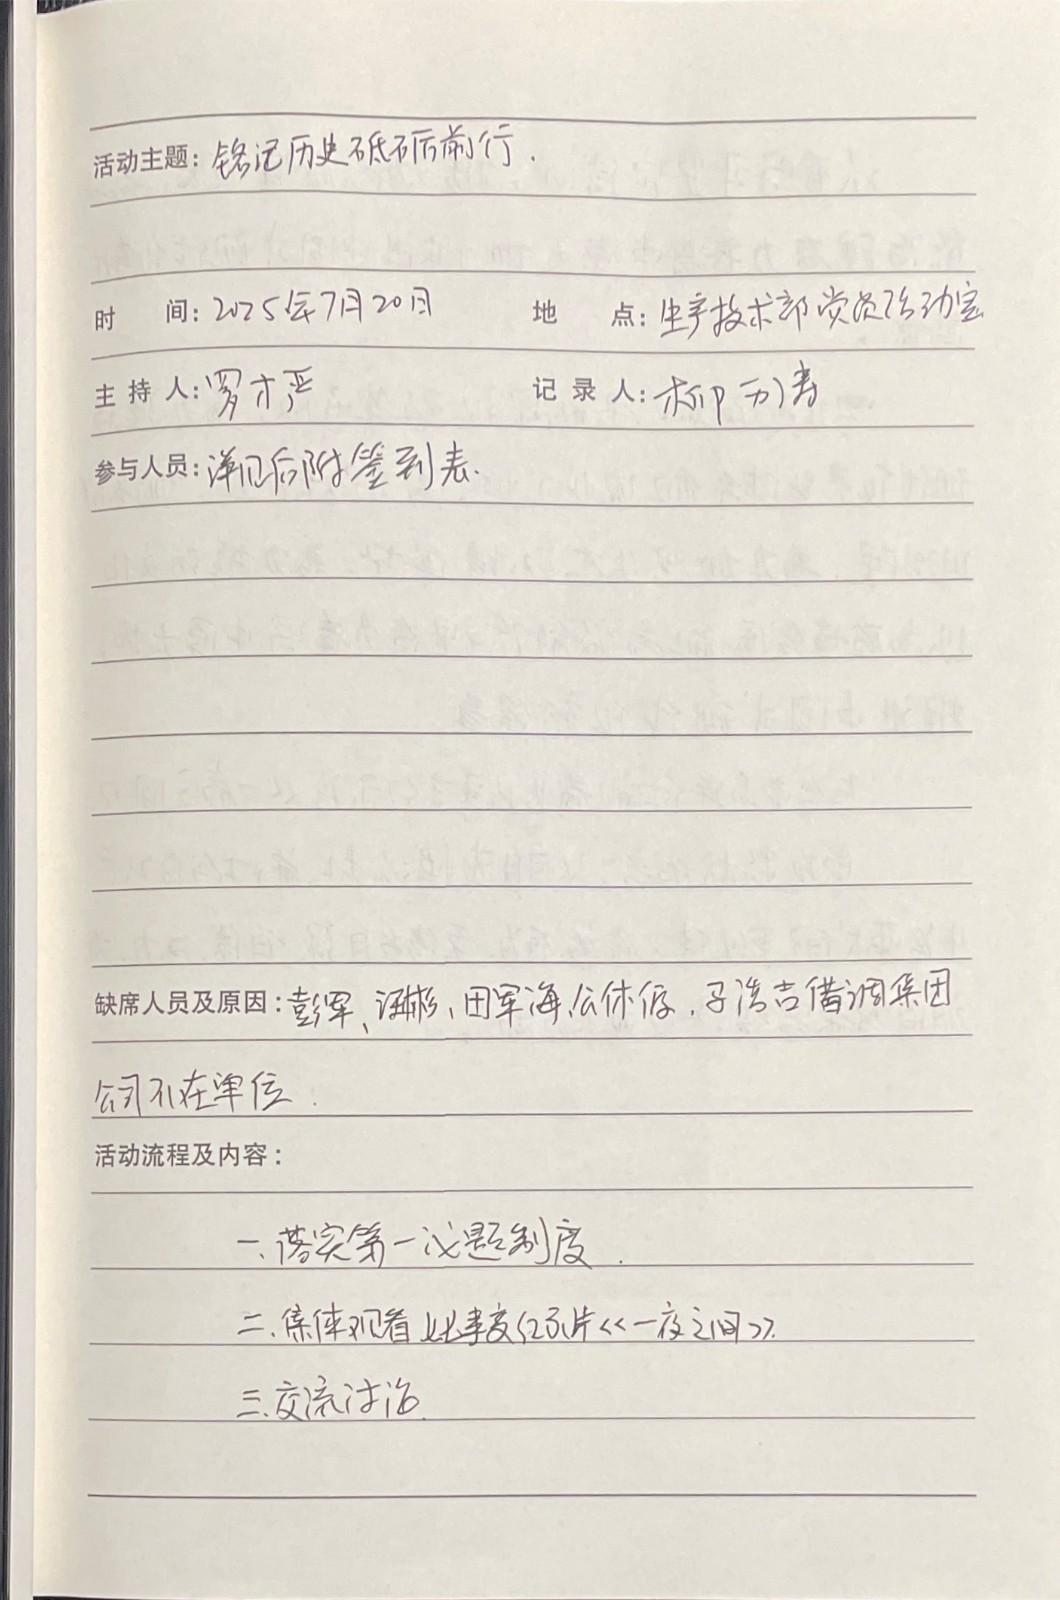 活动主题：铭记历史砥砺前行.
时 间：2025年7月20日 地 点：生产技术部党员活动室
主 持 人：罗才严 记 录 人：柳万寿
参与人员：详见后附签到表.
缺席人员及原因：彭军、汪彬、田军海公休假，子浩吉借调集团
公司不在单位.
活动流程及内容：
一、落实第一议题制度.
二、集体观看 纪录片《一夜之间》.
三、交流讨论.